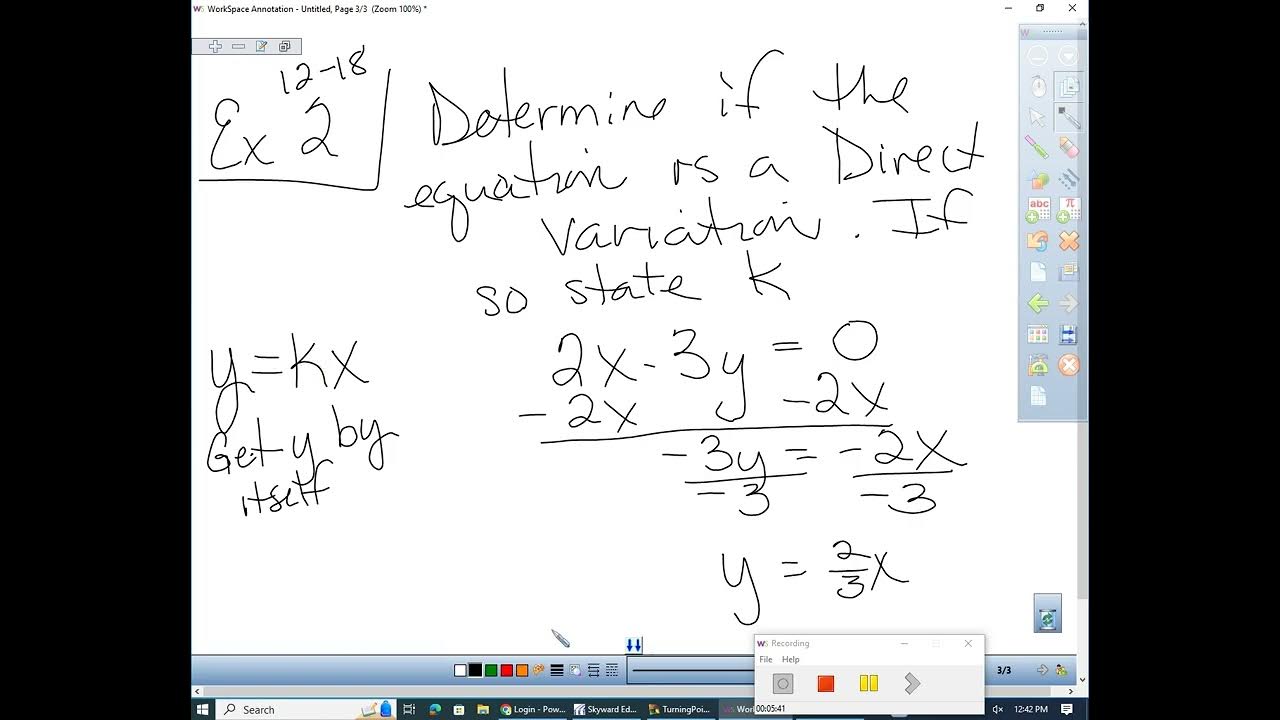 WorkSpace Annotation - Untitled, Page 3/3 (Zoom 100%) *
12-18
Ex 2
Determine if the
equation is a Direct
variation. If
so state K
y=kx
Get y by
itself
2x-3y = 0
-2x -2x
-3y = -2x
-3 -3
y = 2/3 x
abc
π
Recording
File Help
00:05:41
3/3
Search
Login - Pow...
Skyward Ed...
TurningPoi...
12:42 PM